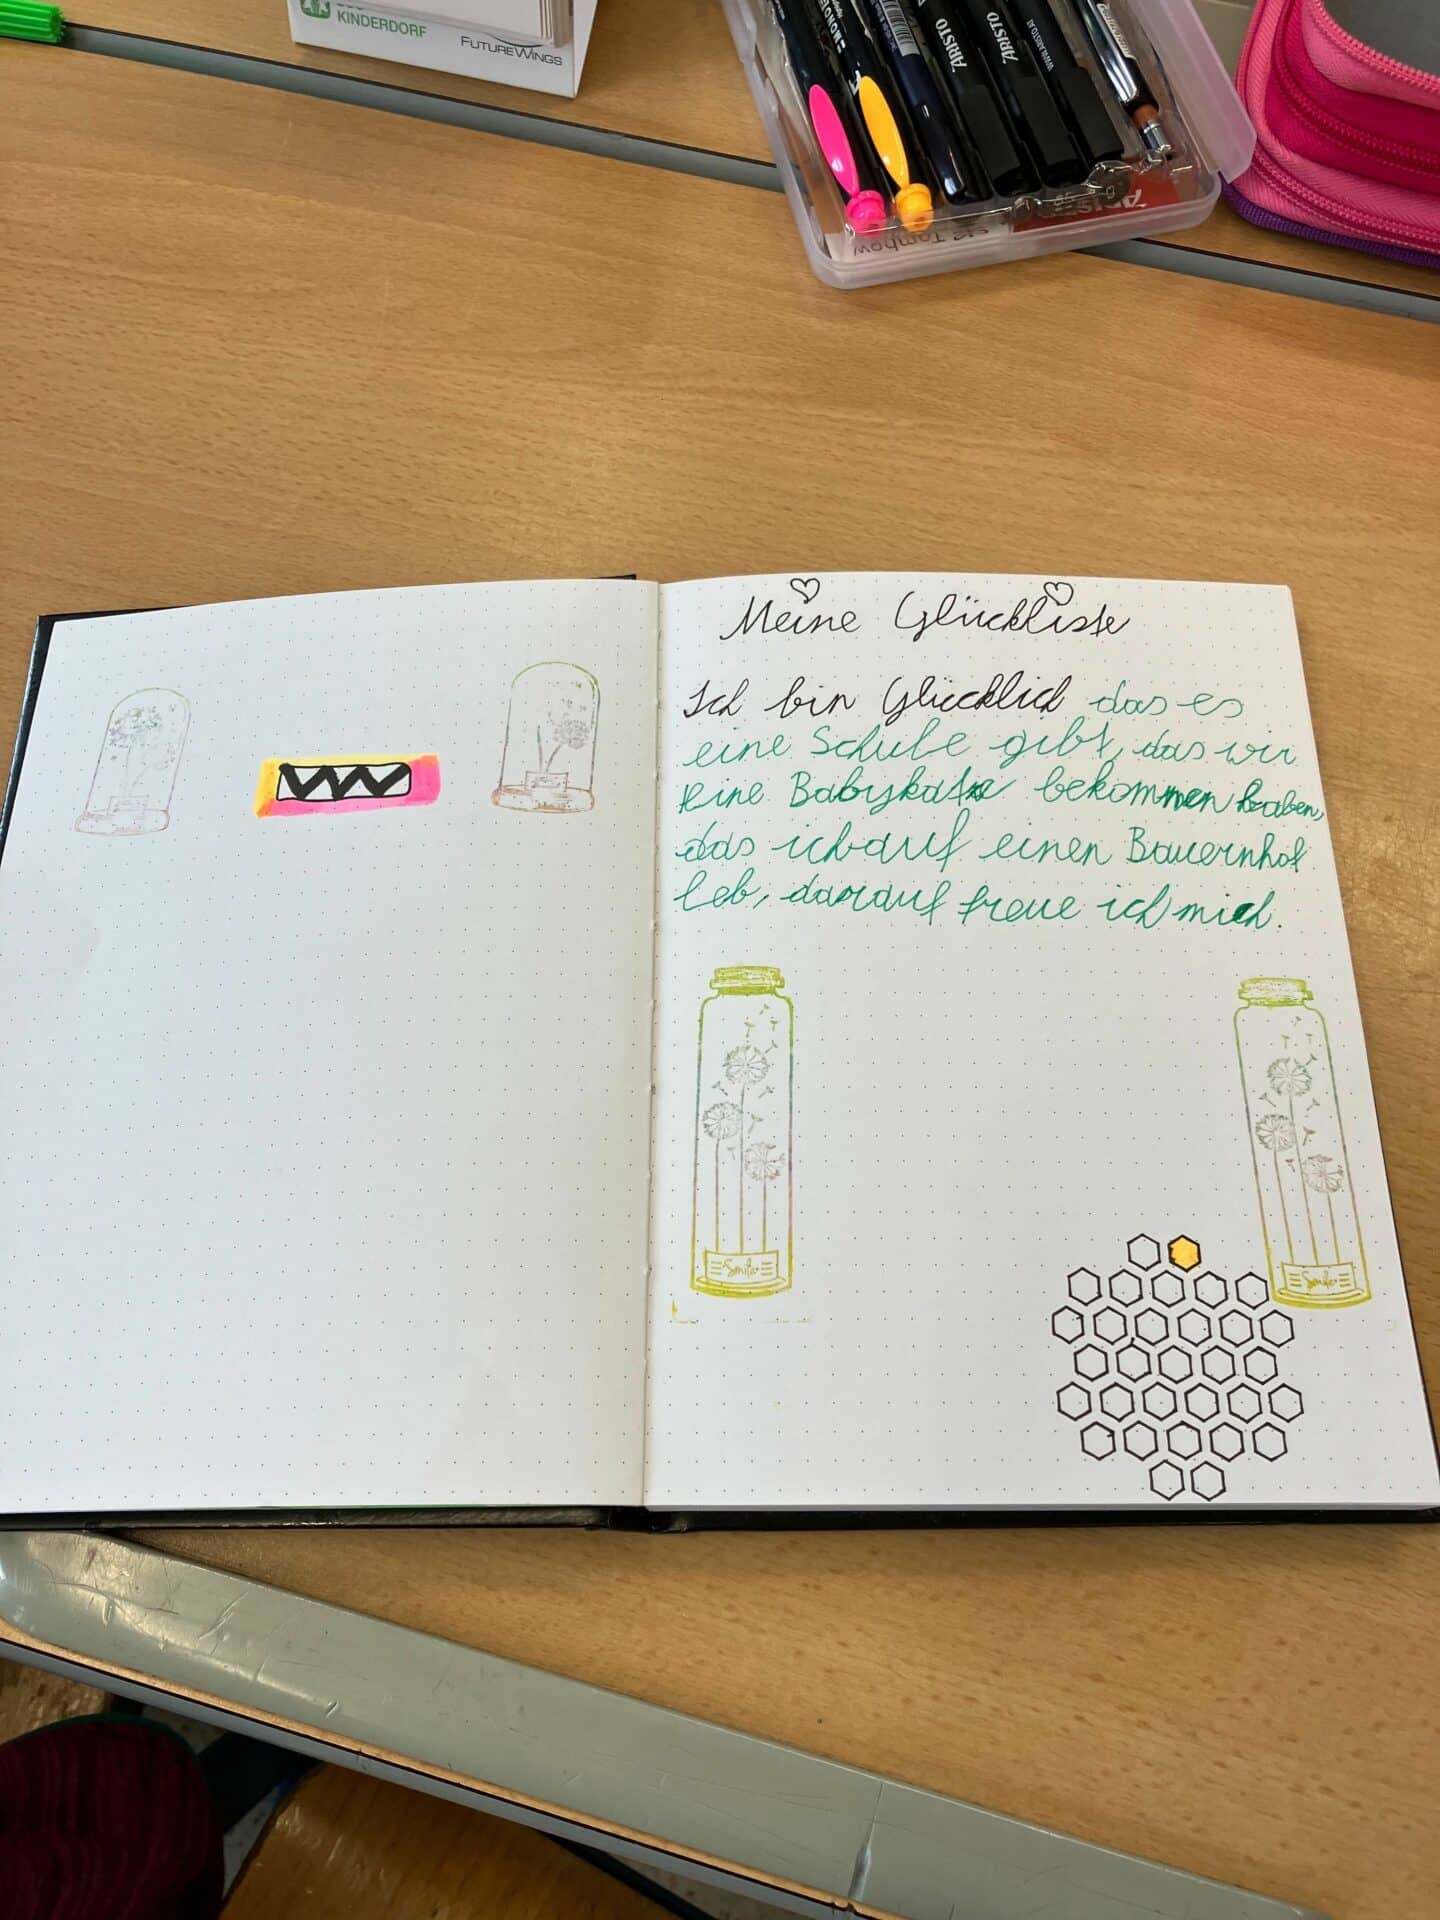 KINDERDORF
FUTUREWINGS
ARISTO
ARISTO
WWW.ARISTO.AT
Tombow
Meine Glückliste
Ich bin Glücklich das es
eine Schule gibt, das wir
eine Babykatze bekommen haben,
das ich auf einen Bauernhof
leb, darauf freue ich mich.
Smile
Smile